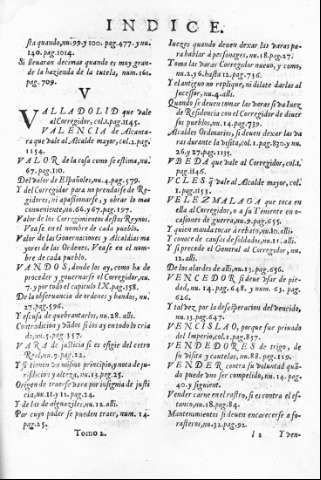 INDICE.
sta quando, nu.99 y 100. pag.477. y nu.
140. pag.1014.
Si lleuaran decimas quando es muy gran-
de la hazienda de la tutela, num.161.
pag.709.
V
VALLADOLID que vale
al Corregidor, col.2. pag.1145.
VALENCIA de Alcanta-
ra que vale al Alcalde mayor, col.2. pag.
1154.
VALOR de la cosa como se estima, nu.
67. pag.110.
Del valor de Españoles, nu.4. pag.579.
Y del Corregidor para no prendarse de Re-
gidores, ni apassionarse, y obrar lo mas
conueniente, nu.66. y 67. pag.197.
Valor de los Corregimientos destos Reynos,
Vease en el nombre de cada pueblo.
Valor de las Gouernaciones y Alcaldias ma
yores de las Ordenes, Vease en el nom-
bre de cada pueblo.
VANDOS, donde los ay, como ha de
proceder y gouernarse el Corregidor, nu.
7. y por todo el capitulo IX. pag.358.
De la obseruancia de ordenes y bandos, nu.
27. pag.596.
Y escusa de quebrantarlos, nu.28. alli.
Contradicion y vãdos si los ay en todo lo cria
do, nu.5. pag.357.
VARA de justicia si es efigie del cetro
Real, nu.9. pag.22.
Y si tienen vn mismo principio, y nota de ju-
risdicion y alteza, nu.13. pag.25.
Origen de traerse vara por insignia de justi
cia, nu.11. y 12. pag.24.
Y de los de alguaziles, nu.12. alli.
Por cuyo poder se pueden traer, num. 14.
pag.25.
Tomo 2.
Iuezes quando deuen dexar las varas pa-
ra hablar a personages, nu.18. pag.27.
Toma las varas Corregidor nueuo, y como,
nu.2. y 56. hasta 12. pag.736.
Y el antiguo no replique, ni dilate darlas al
sucessor, nu.4. alli.
Quando se deuen tomar las varas si va Iuez
de Residencia con el Corregidor de diuer
sos pueblos, nu.14. pag.739.
Alcaldes Ordinarios, si deuen dexar las va
ras durante la visita, col.1. pag.830. y nu.
26. y 27. pag.1135.
VBEDA que vale al Corregidor, col.2.
pag.1146.
VCLES q̃ vale al Alcalde mayor, col.1.
pag.1153.
VELEZMALAGA que toca en
ella al Corregidor, o a su Teniente en o-
casiones de guerra, nu.9. pag.655.
Y quien manda tocar a rebato, nu.10. alli.
Y conoce de causas de soldados, nu.11. alli.
Y si precede al General al Corregidor, nu.
12. alli.
De los alardes de alli, nu.13. pag.656.
VENCEDOR si deue vsar de pie-
dad, nu. 14. pag.648. y num. 63. pag.
626.
Y tal vez por la desesperacion del vencido,
nu.13. pag.647.
VENCISLAO, porque fue priuado
del Imperio, col.1. pag.857.
VENDEDORES de trigo, de
su visita y cautelas, nu.88. pag.119.
VENDER contra su voluntad quã-
do puede vno ser compelido, nu.14. pag.
40. y siguient.
Vender carne en el rastro, si es contra el es-
tanco, nu.18. pag.84.
Mantenimientos si deuen encarecerse a fo-
rasteros, nu.32. pag.92.
Y ven-